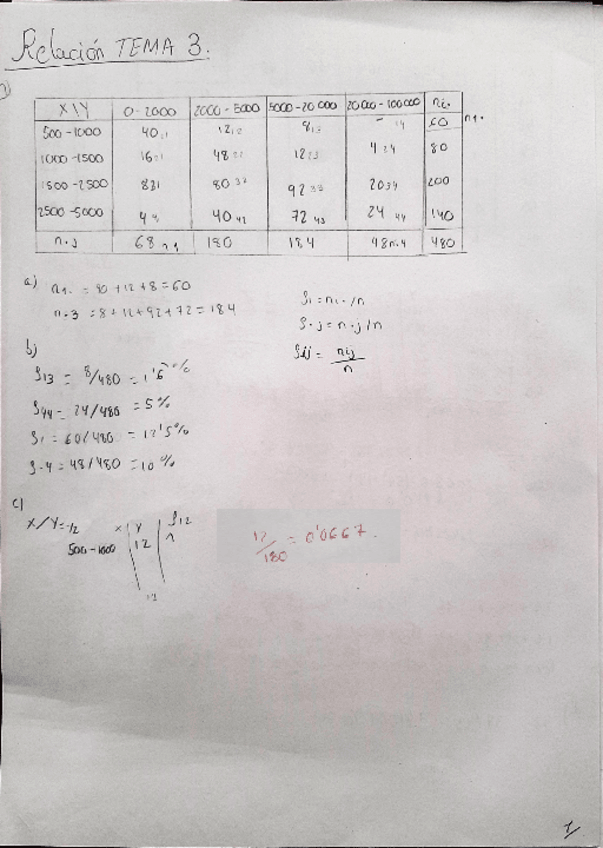 Relación TEMA 3.
X\Y 0-2000 2000-5000 5000-20000 20000-100000 ni.
500-1000 40 11 12 12 8 13 - 14 60 n1.
1000-1500 16 21 48 22 12 23 4 24 80
1500-2500 8 31 80 32 92 33 20 34 200
2500-5000 4 40 42 72 43 24 44 140
n.j 68 n.1 180 184 48 n.4 480
a) n1. = 40+12+8=60
n.3 = 8+12+92+72=184
fi = ni./n
f.j = n.j/n
fij = nij/n
b)
f13 = 8/480 = 1'6 %
f44 = 24/480 = 5%
f1 = 60/480 = 12'5%
f.4 = 48/480 = 10%
c)
X/Y=
X Y f12
500-1000 12
12/180 = 0'0667.
1